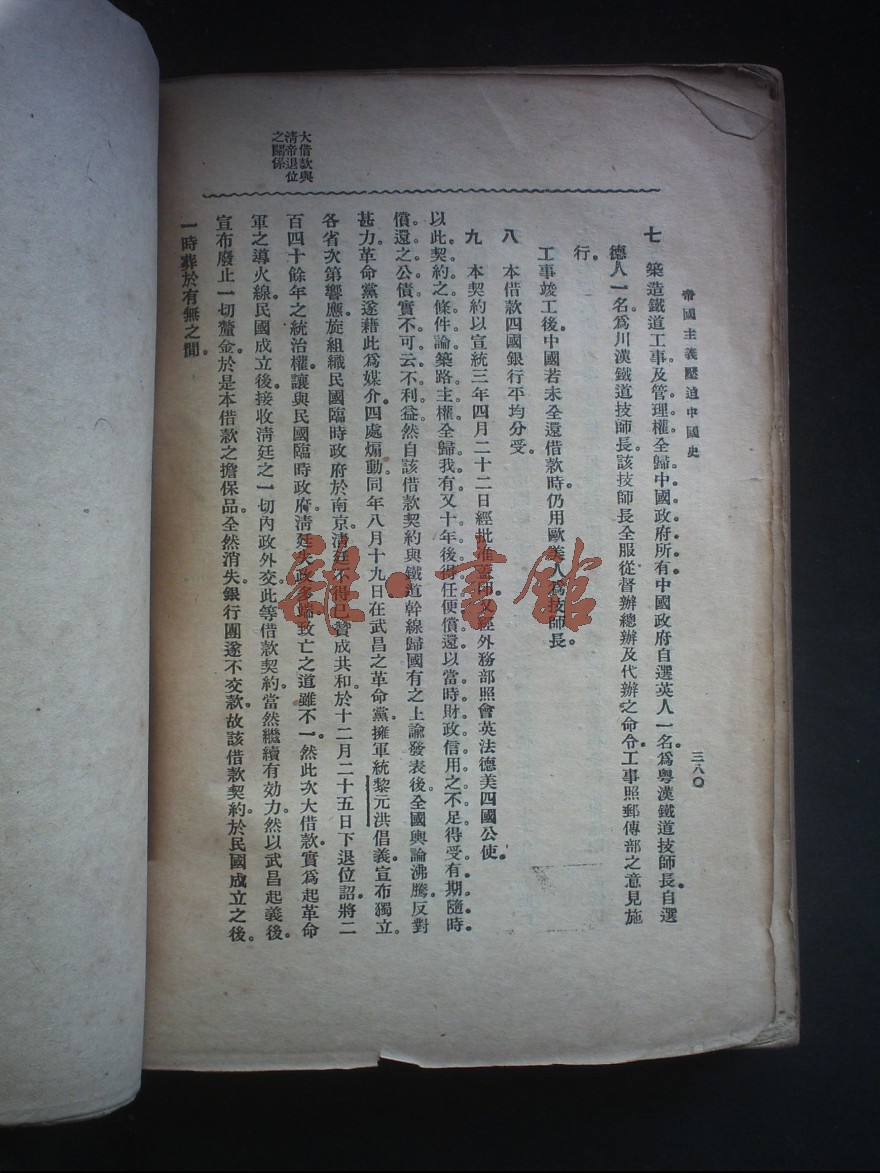 帝國主義壓迫中國史
三八〇
七　築造鐵道工事及管理權。全歸中國政府所有。中國政府自選英人一名。爲粵漢鐵道技師長。自選
德人一名。爲川漢鐵道技師長。該技師長全服從督辦總辦及代辦之命令。工事照郵傳部之意見施
行。
工事竣工後。中國若未全還借款時。仍用歐美人爲技師長。
八　本借款四國銀行平均分受。
九　本契約以宣統三年四月二十二日經批准蓋印。又經外務部照會英法德美四國公使。
以此契約之條件論。築路主權。全歸我有。又十年後。得任便償還。以當時財政信用之不足。得受有期隨時
償還之公債。實不可云不利益。然自該借款契約與鐵道幹線歸國有之上諭發表後。全國輿論沸騰。反對
甚力。革命黨遂藉此爲媒介。四處煽動。同年八月十九日在武昌之革命黨。擁軍統黎元洪倡義。宣布獨立。
各省次第響應。旋組織民國臨時政府於南京。清廷不得已贊成共和。於十二月二十五日下退位詔。將二
百四十餘年之統治權。讓與民國臨時政府。清廷失政多端。致亡之道雖不一。然此次大借款。實爲起革命
軍之導火線。民國成立後。接收淸廷之一切內政外交。此等借款契約。當然繼續有効力。然以武昌起義後。
宣布廢止一切釐金。於是本借款之擔保品。全然消失。銀行團遂不交款。故該借款契約。於民國成立之後。
一時葬於有無之間。
大借款與
清帝退位
之關係
雒·書館